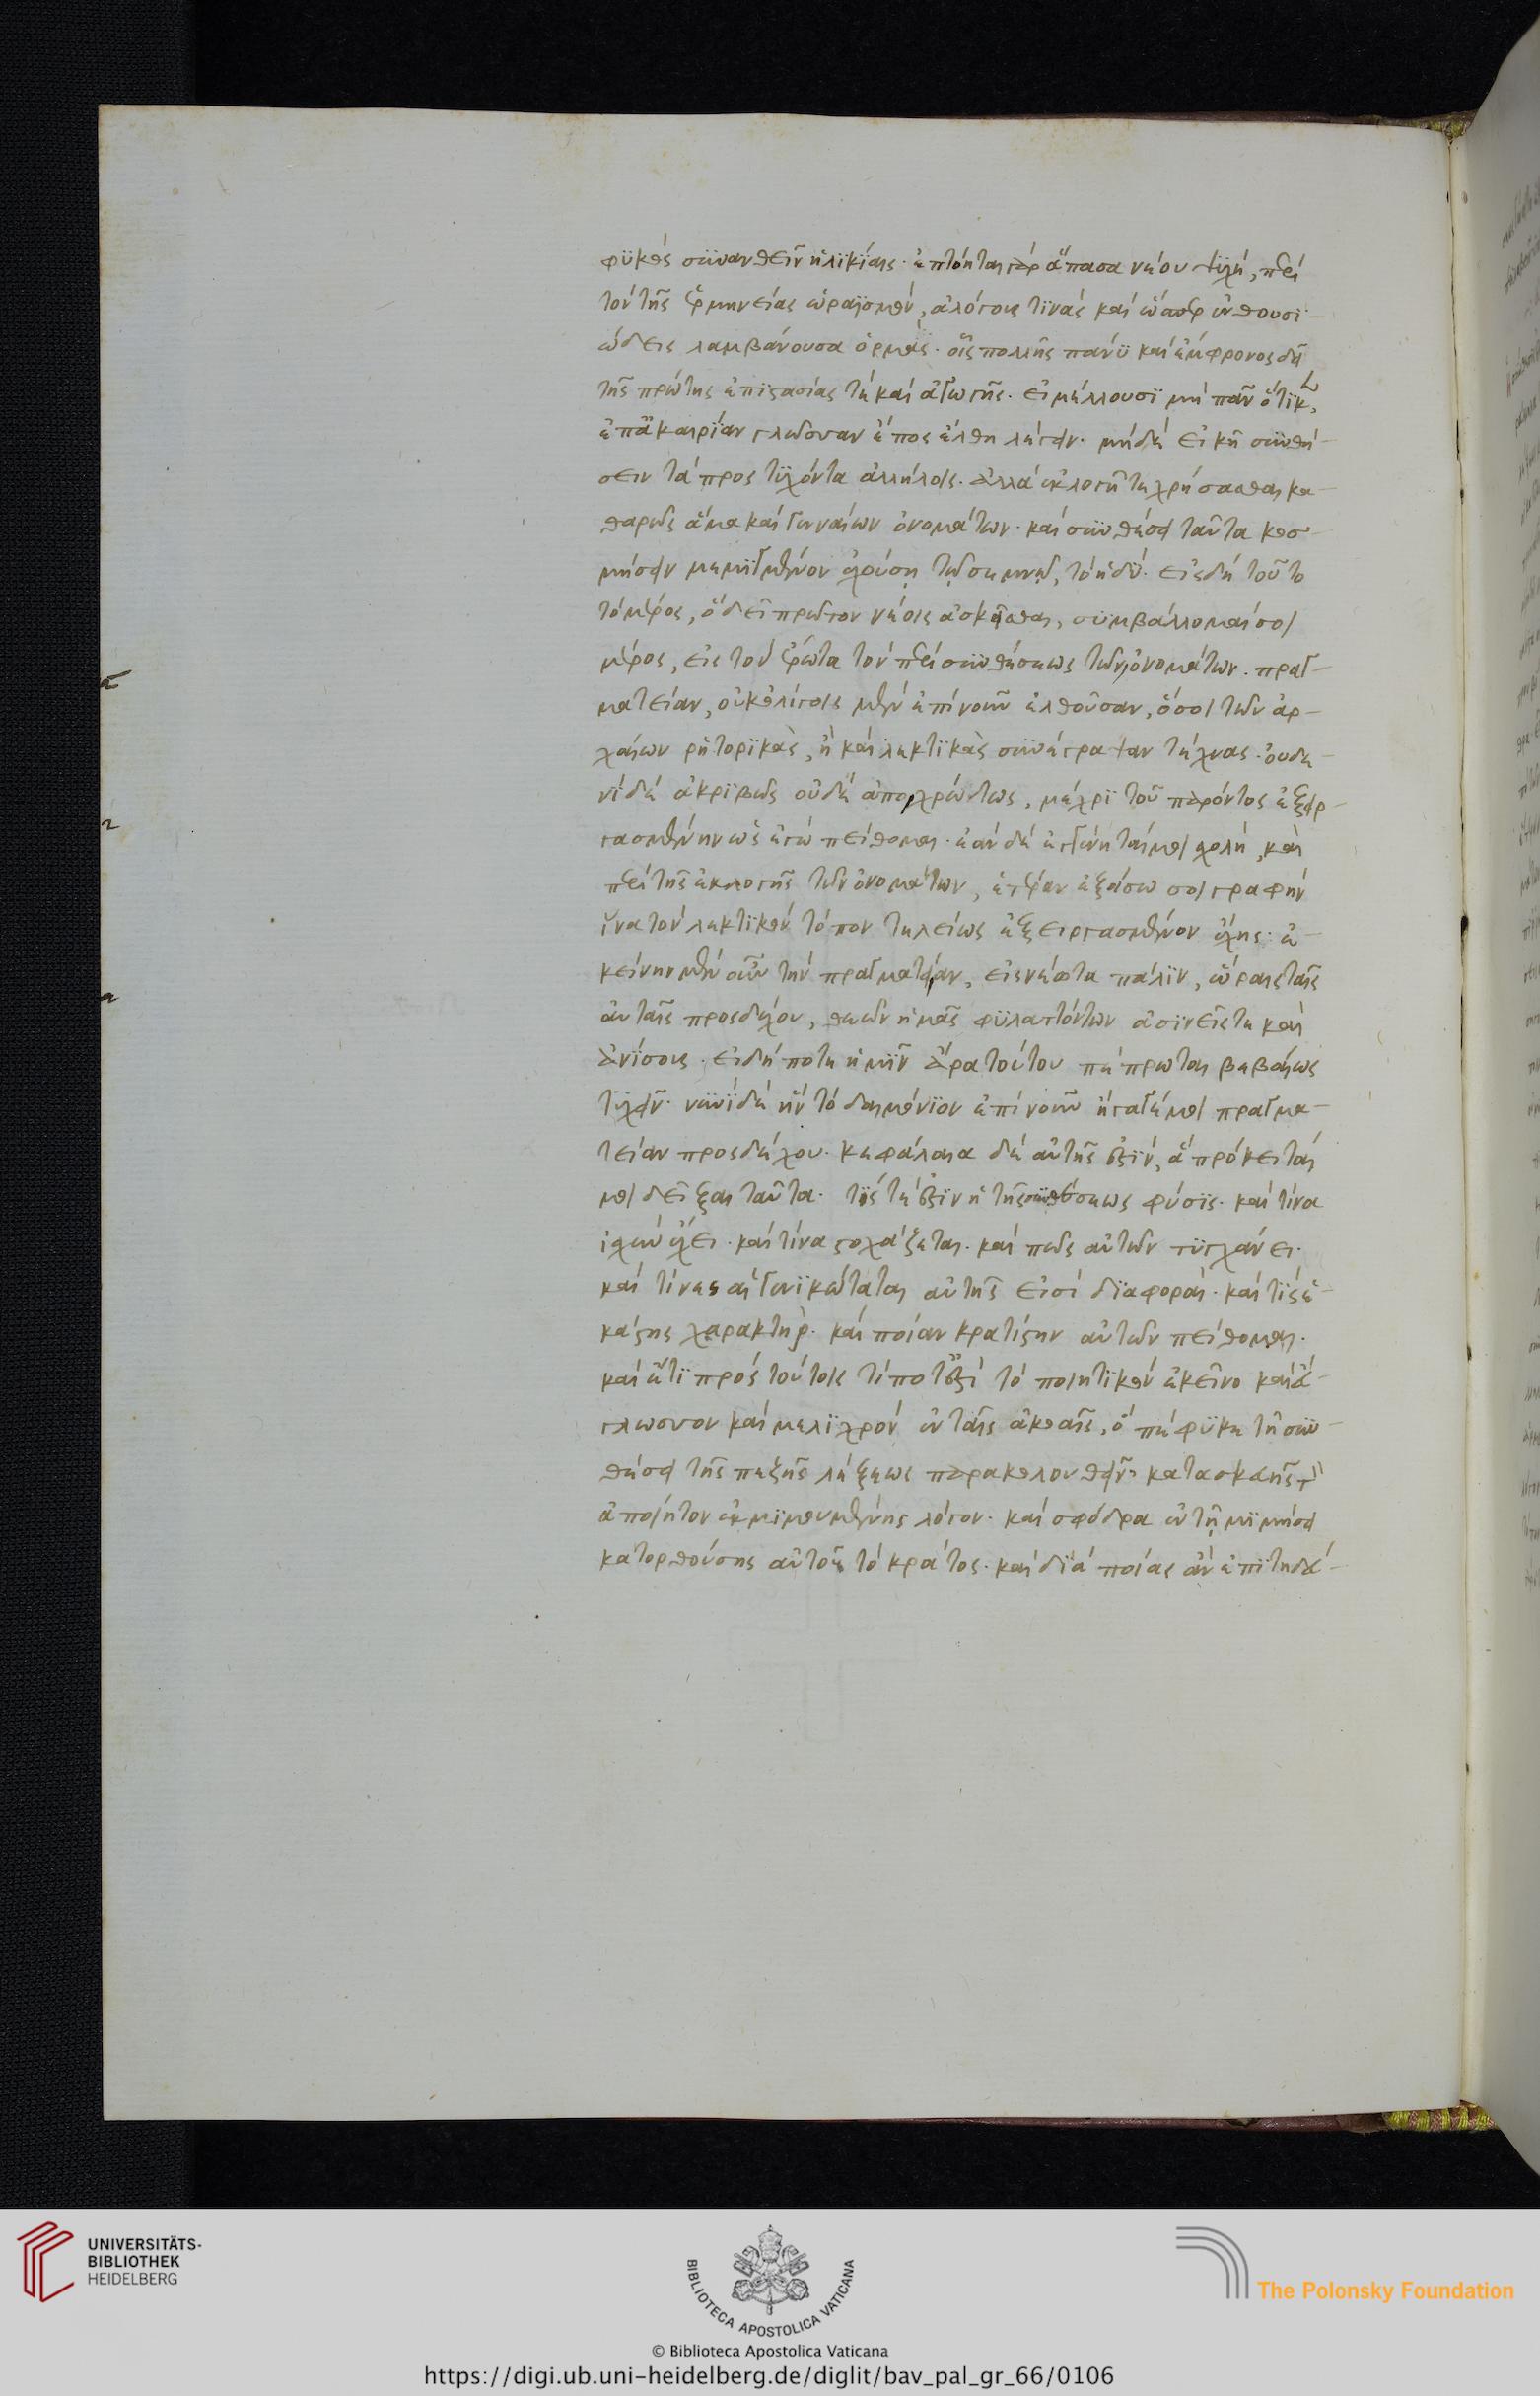 φυκὸς συνανθεῖν ἡλικίαις· ἐπτόηται γὰρ ἅπασα νέου ψυχή, περὶ
τὸν τῆς ἑρμηνείας ὡραϊσμόν, ἀλόγους τινὰς καὶ ὥσπερ ἐνθουσι-
ώδεις λαμβάνουσα ὁρμάς· οἷς πολλῆς πάνυ καὶ ἔμφρονος δεῖ
τῆς πρώτης ἐπιστασίας τὲ καὶ ἀγωγῆς· εἰ μέλλουσι μὴ πᾶν ὅτι κ
ἐπ' ἀκαιρίαν γλῶσσαν ἔπος ἔλθη λέγειν· μηδὲ εἰκῆ συνθή-
σειν τὰ προς τυχόντα ἀλλήλοις· ἀλλὰ ἐκλογῆ τε χρήσασθαι κα-
θαρῶς ἅμα καὶ γενναίων ὀνομάτων· καὶ συνθέσει ταῦτα κοσ-
μήσειν μεμιγμένον ἐχούσῃ τῷ σεμνῷ, τὸ ἡδύ· εἰς δὴ τοῦτο
τὸ μέρος, ὃ δεῖ πρῶτον νέοις ἀσκεῖσθαι, συμβάλλομαί σοι
μέρος, εἰς τὸν ἔρωτα τὸν περὶ συνθέσεως τῶν ὀνομάτων. πραγ-
ματείαν, οὐκ ὀλίγοις μὲν ἐπὶ νοῦν ἐλθοῦσαν, ὅσοι τῶν ἀρ-
χαίων ῥητορικάς, ἢ καὶ λεκτικὰς συνέγραψαν τέχνας· οὐδε-
νὶ δὲ ἀκριβῶς οὐδὲ ἀποχρώντως, μέχρι τοῦ παρόντος ἐξειρ-
γασμένην ὡς ἐγὼ πείθομαι· ἐὰν δὲ ἐγγένηταί μοι σχολή, καὶ
περὶ τῆς ἐκλογῆς τῶν ὀνομάτων, ἑτέραν ἐξοίσω σοι γραφὴν
ἵνα τὸν λεκτικὸν τόπον τελείως ἐξειργασμένον ἔχῃς· ἐ-
κείνην μὲν οὖν τὴν πραγματείαν, εἰς νέωτα πάλιν, ὥραις ταῖς
αὐταῖς προσδέχου, θεῶν ἡμᾶς φυλαττόντων ἀσινεῖς τε καὶ
ἀνόσους· εἰ δή ποτε ἡμῖν ἄρα τούτου πέπρωται βεβαίως
τυχεῖν· νυνὶ δὲ ἣν τὸ δαιμόνιον ἐπὶ νοῦν ἤγαγέ μοι πραγμα-
τείαν προσδέχου· κεφάλαια δὲ αὐτῆς ἐστίν, ἃ πρόκειταί
μοι δεῖξαι ταῦτα· τίς τέ ἐστιν ἡ τῆς συνθέσεως φύσις· καὶ τίνα
ἰσχὺν ἔχει· καὶ τίνα στοχάζεται· καὶ πῶς αὐτῶν τυγχάνει·
καὶ τίνες αἱ γενικώταται αὐτῆς εἰσὶ διαφοραί· καὶ τίς ἑ-
κάστης χαρακτήρ· καὶ ποίαν κρατίστην αὐτῶν πείθομαι·
καὶ ἔτι πρὸς τούτοις τί ποτ' ἐστὶ τὸ ποιητικὸν ἐκεῖνο καὶ εὔ-
γλωσσον καὶ μελιχρὸν ἐν ταῖς ἀκοαῖς, ὃ πέφυκε τῇ συν-
θέσει τῆς πεζῆς λέξεως παρακολουθεῖν· κατασκευῆς τ
ἀποίητον ἐκμιμουμένης λόγον· καὶ σφόδρα ἐν τῇ μιμήσει
κατορθούσης αὐτοῦ τὸ κράτος· καὶ διὰ ποίας ἂν ἐπιτηδεύ-
UNIVERSITÄTS-
BIBLIOTHEK
HEIDELBERG
BIBLIOTECA APOSTOLICA VATICANA
The Polonsky Foundation
© Biblioteca Apostolica Vaticana
https://digi.ub.uni-heidelberg.de/diglit/bav_pal_gr_66/0106